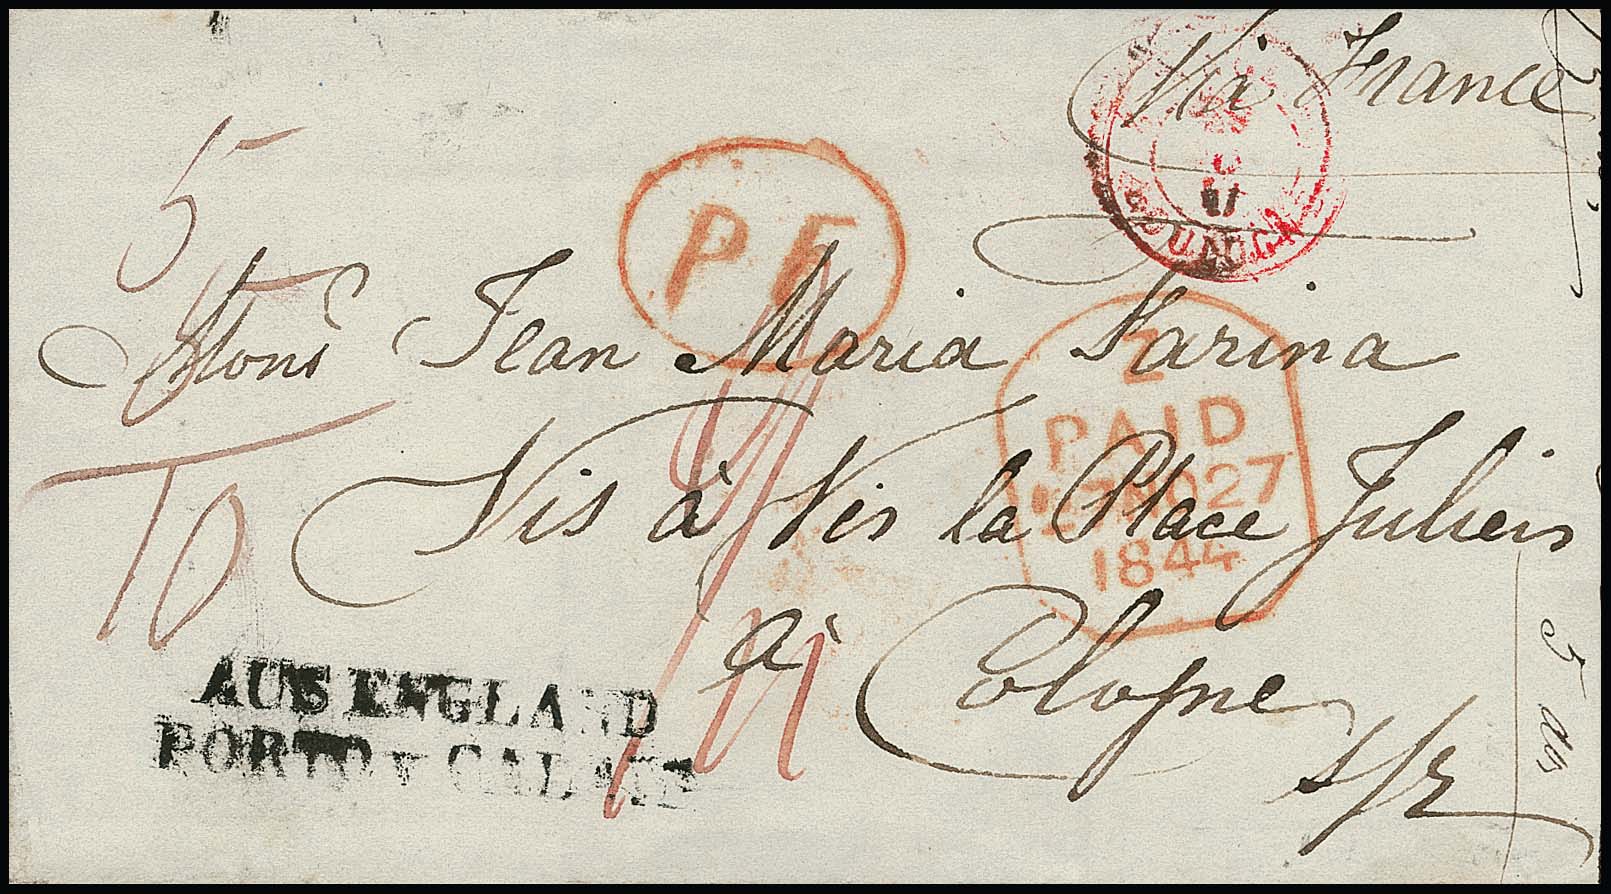 Via France
5
P F
Mons Jean Maria Farina
Z
PAID
27 NO 27
1844
Vis à Vis la Place Juliers
10
à
Cologne
AUS ENGLAND
PORTO v. CALAIS